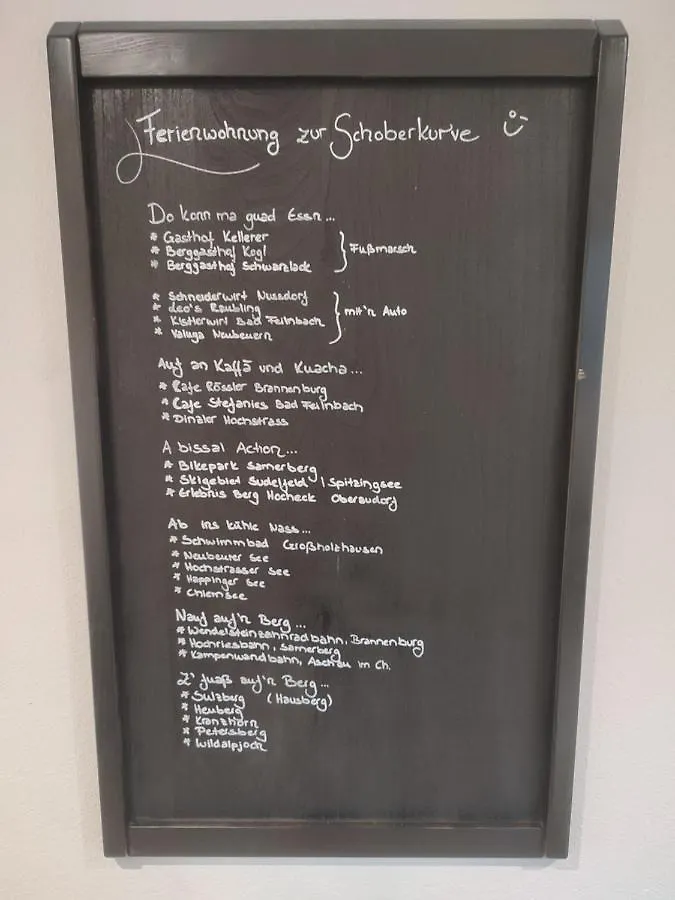 Ferienwohnung zur Schoberkurve
Do konn ma guad Essn...
* Gasthof Kellerer
* Berggasthof Kogl } Fußmarsch
* Berggasthof Schwarzlack
* Schneiderwirt Nussdorf
* Leo's Raubling } mit'n Auto
* Kistlerwirt Bad Feilnbach
* Valuga Neubeuern
Auf an Kaffä und Kuacha...
* Cafe Rössler Brannenburg
* Cafe Stefanies Bad Feilnbach
* Dinaler Hochstrass
A bissal Action...
* Bikepark Samerberg
* Skigebiet Sudelfeld / Spitzingsee
* Erlebnis Berg Hocheck Oberaudorf
Ab ins kühle Nass...
* Schwimmbad Großholzhausen
* Neubeurer See
* Hochstrasser See
* Happinger See
* Chiemsee
Nauf auf'n Berg...
* Wendelsteinzahnradbahn, Brannenburg
* Hochriesbahn, Samerberg
* Kampenwandbahn, Aschau im Ch.
Z' fuaß auf'n Berg...
* Sulzberg (Hausberg)
* Heuberg
* Kranzhorn
* Petersberg
* Wildalpjoch